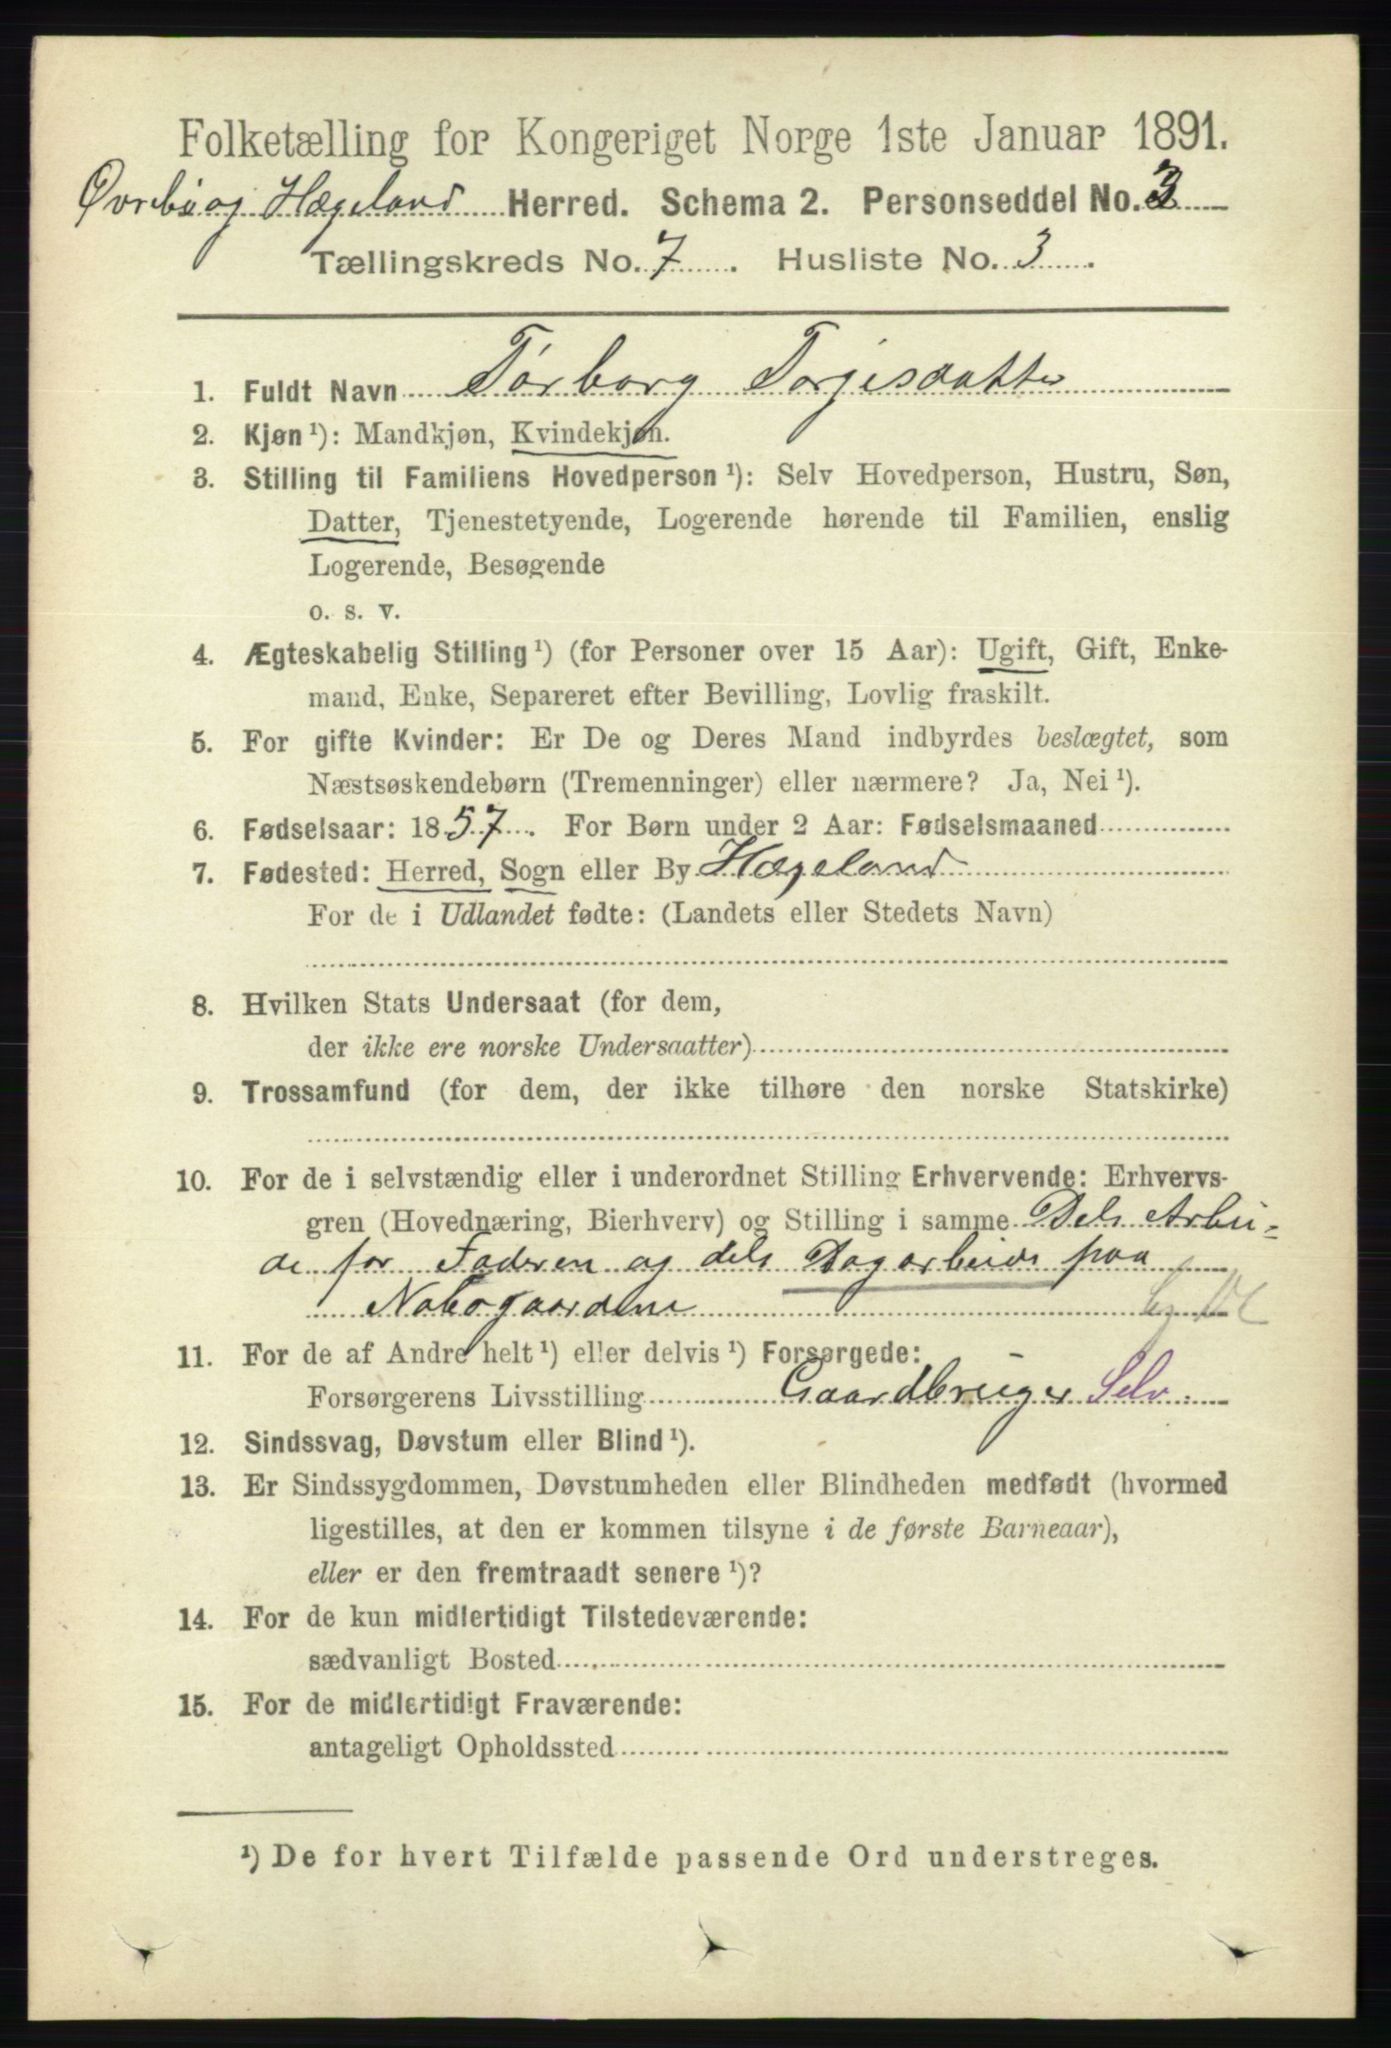 Folketælling for Kongeriget Norge 1ste Januar 1891.
Øvrebø og Hægeland Herred. Schema 2. Personseddel No. 3
Tællingskreds No. 7. Husliste No. 3.
1. Fuldt Navn Torborg Torjesdatter
2. Kjøn ¹): Mandkjøn, Kvindekjøn.
3. Stilling til Familiens Hovedperson ¹): Selv Hovedperson, Hustru, Søn,
Datter, Tjenestetyende, Logerende hørende til Familien, enslig
Logerende, Besøgende
o. s. v.
4. Ægteskabelig Stilling ¹) (for Personer over 15 Aar): Ugift, Gift, Enke-
mand, Enke, Separeret efter Bevilling, Lovlig fraskilt.
5. For gifte Kvinder: Er De og Deres Mand indbyrdes beslægtet, som
Næstsøskendebørn (Tremenninger) eller nærmere? Ja, Nei ¹).
6. Fødselsaar: 1857. For Børn under 2 Aar: Fødselsmaaned
7. Fødested: Herred, Sogn eller By Hægeland
For de i Udlandet fødte: (Landets eller Stedets Navn)
8. Hvilken Stats Undersaat (for dem,
der ikke ere norske Undersaatter)
9. Trossamfund (for dem, der ikke tilhøre den norske Statskirke)
10. For de i selvstændig eller i underordnet Stilling Erhvervende: Erhvervs-
gren (Hovednæring, Bierhverv) og Stilling i samme Dels Arbei-
de for Faderen og dels Dagarbeide paa
Nabogaardene
11. For de af Andre helt ¹) eller delvis ¹) Forsørgede:
Forsørgerens Livsstilling Gaardbruger Selv.
12. Sindssvag, Døvstum eller Blind ¹).
13. Er Sindssygdommen, Døvstumheden eller Blindheden medfødt (hvormed
ligestilles, at den er kommen tilsyne i de første Barneaar),
eller er den fremtraadt senere ¹)?
14. For de kun midlertidigt Tilstedeværende:
sædvanligt Bosted
15. For de midlertidigt Fraværende:
antageligt Opholdssted
¹) De for hvert Tilfælde passende Ord understreges.